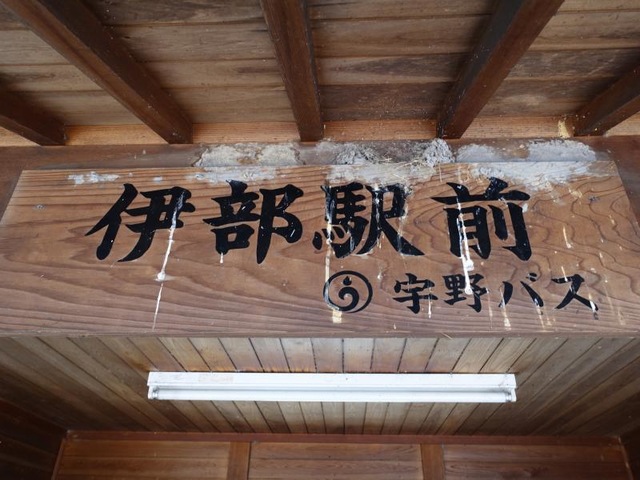 伊部駅前
宇野バス